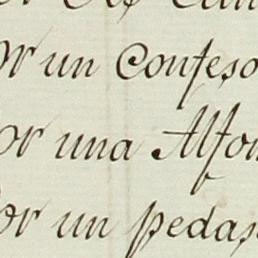 or un Confeso
or una Alfom
Por un pedas